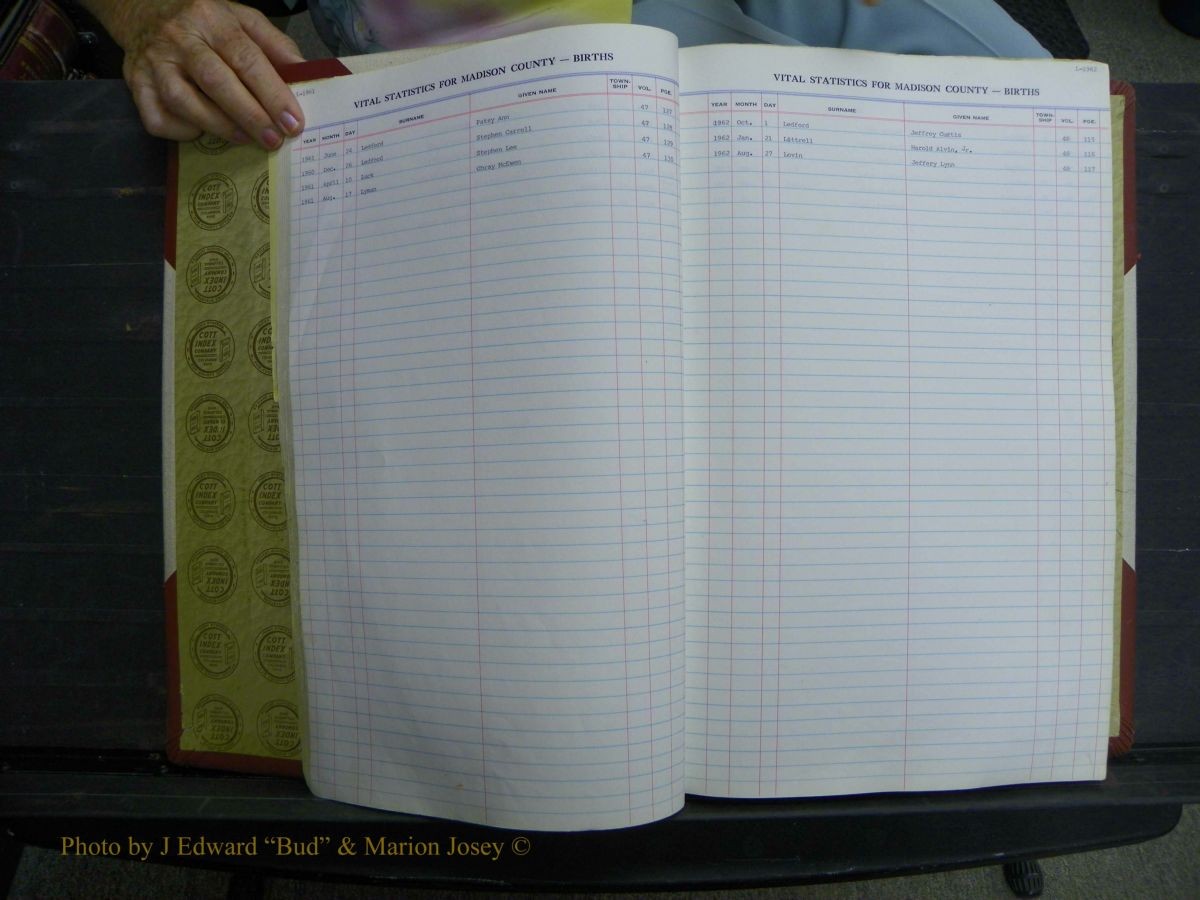 L-1961
VITAL STATISTICS FOR MADISON COUNTY — BIRTHS
YEAR MONTH DAY SURNAME GIVEN NAME TOWN-SHIP VOL. PGE.
1961 June 24 Ledford Patsy Ann 47 127
1960 Dec. 26 Ledford Stephen Carroll 47 128
1961 April 10 Stephen Lee 47 129
1961 Aug. 17 Lyman Ghray McEwen 47 130
L-1962
VITAL STATISTICS FOR MADISON COUNTY — BIRTHS
YEAR MONTH DAY SURNAME GIVEN NAME TOWN-SHIP VOL. PGE.
1962 Oct. 1 Ledford Jeffrey Curtis 48 115
1962 Jan. 21 Littrell Harold Alvin, Jr. 48 116
1962 Aug. 27 Lovin Jeffery Lynn 48 117
COTT INDEX COMPANY
Photo by J Edward “Bud” & Marion Josey ©